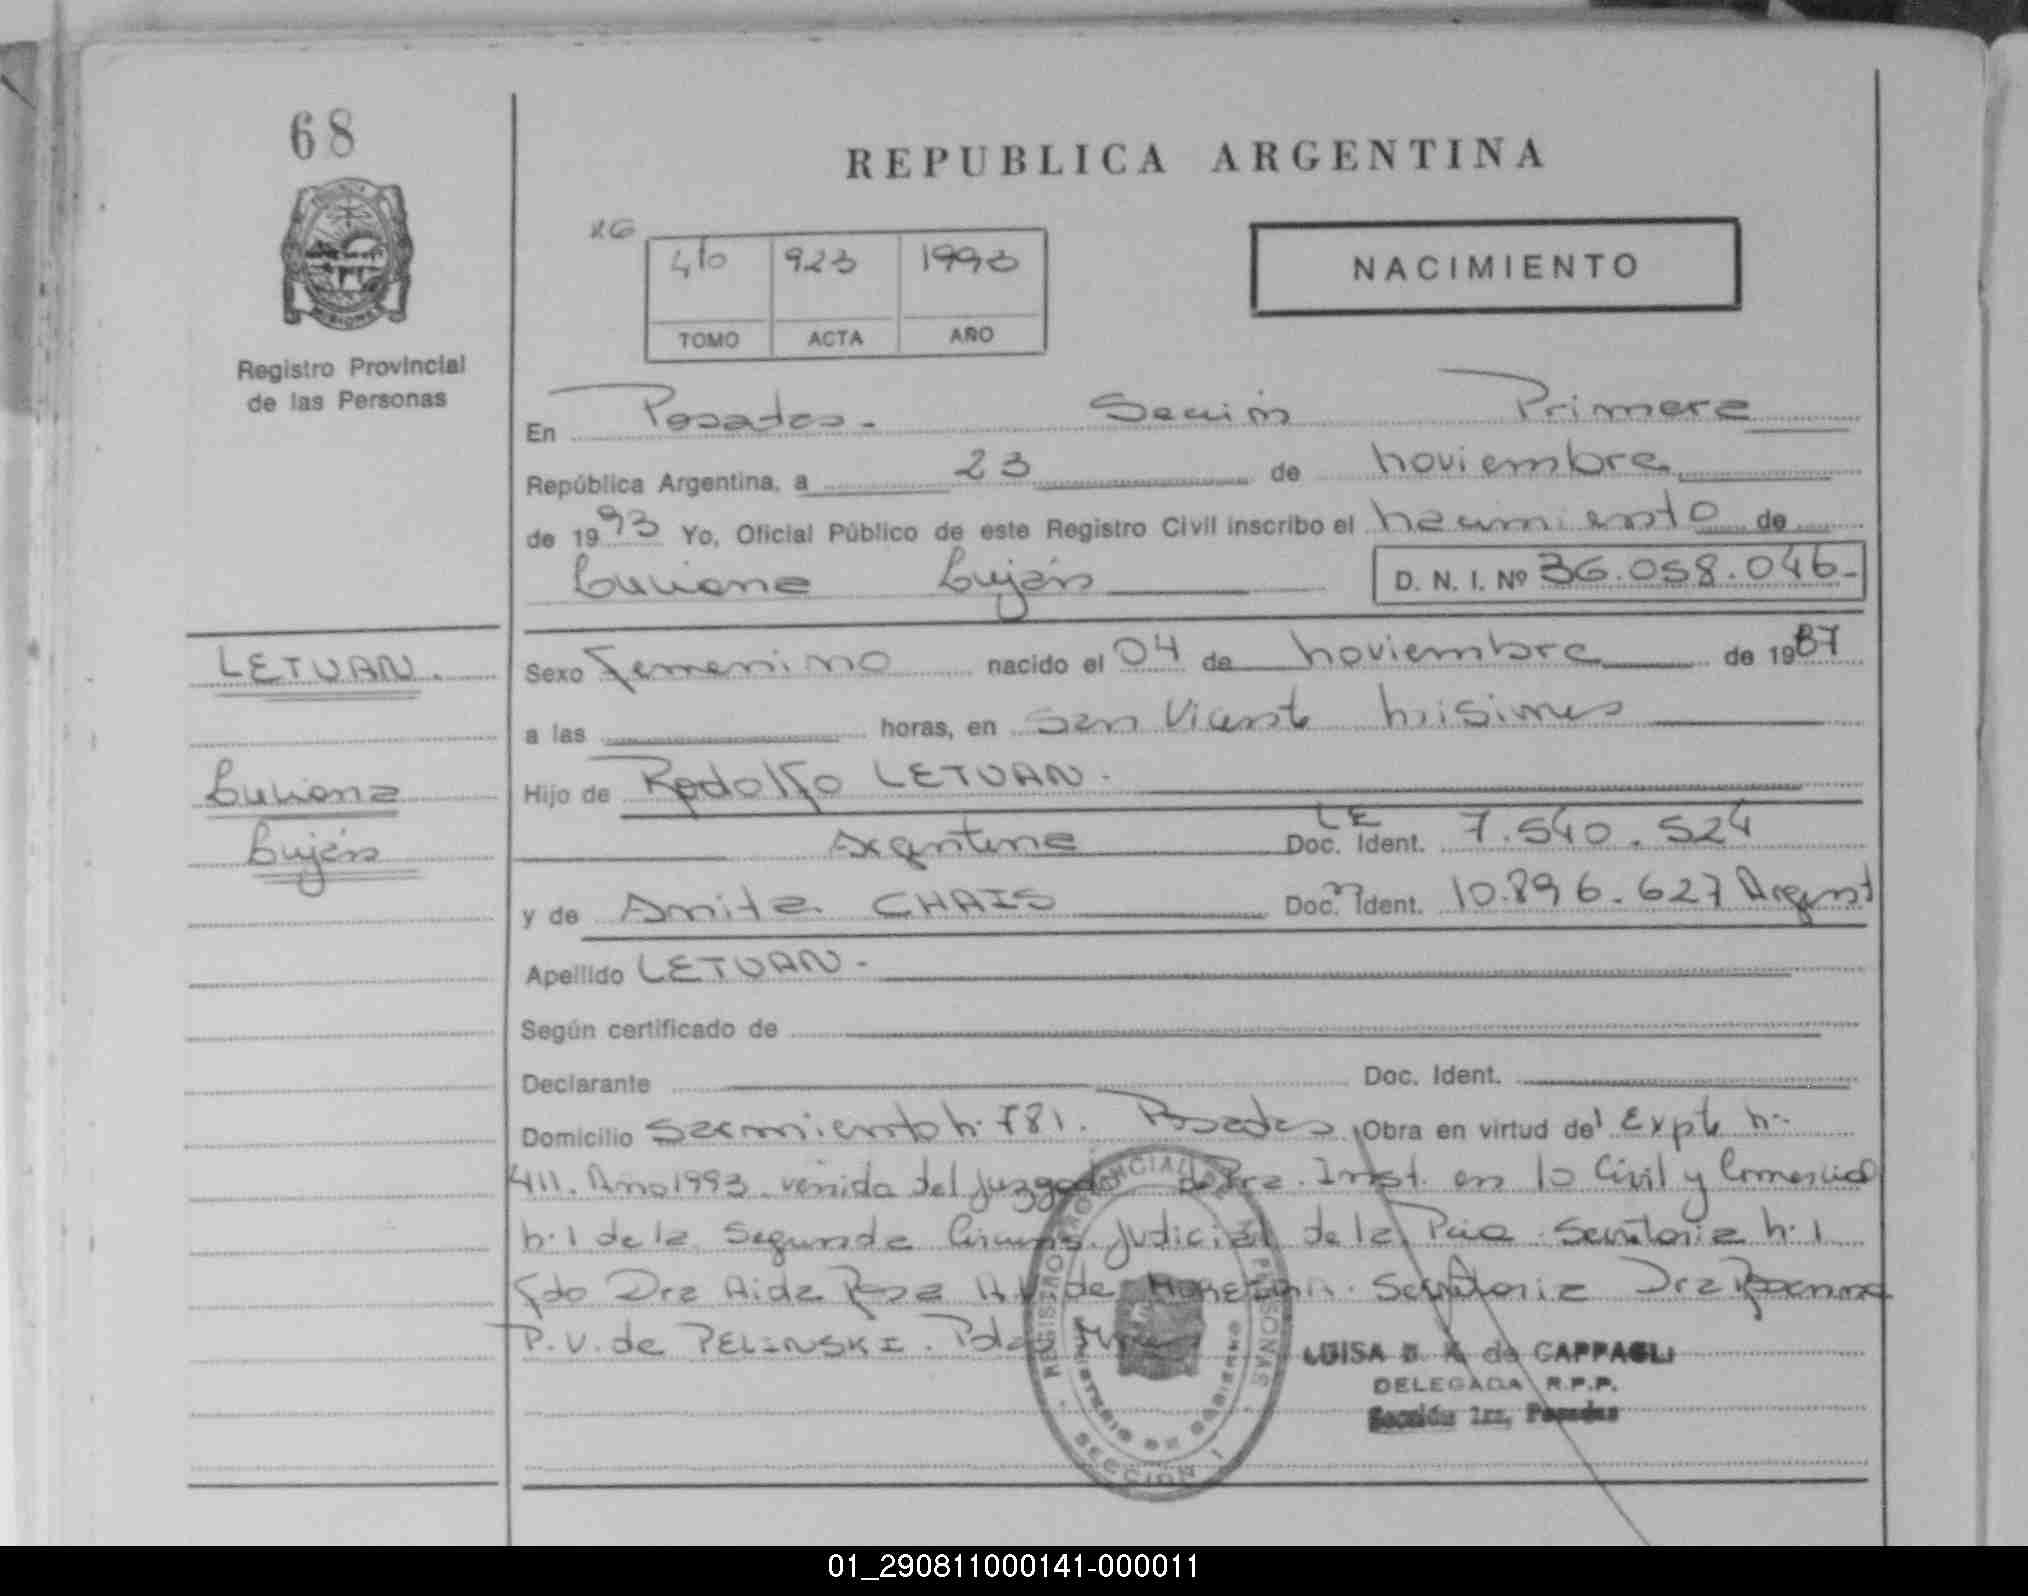 68
REPUBLICA ARGENTINA
4to 923 1993
TOMO ACTA AÑO
NACIMIENTO
MISIONES
Registro Provincial
de las Personas
En Posadas. Sección Primera
República Argentina, a 23 de noviembre
de 1993 Yo, Oficial Público de este Registro Civil inscribo el nacimiento de
Luciana Luján D. N. I. Nº 36.058.046-
LETVAN.
Luciana
Luján
Sexo femenino nacido el 04 de noviembre de 1987
a las horas, en San Vicente Misiones
Hijo de Rodolfo LETVAN.
Argentina LE Doc. Ident. 7.540.524
y de Anita CHAIS Doc. Ident. 10.896.627 Argent
Apellido LETVAN.
Según certificado de
Declarante Doc. Ident.
Domicilio Sarmiento n. 781. Posadas, Obra en virtud del Expte n.
411. Año 1993. venida del Juzgado de 1ra. Inst. en lo Civil y Comercial
n. 1 de la Segunda Circuns. Judicial de la Pcia. Secretaria n. 1
fdo Dra Aida Rosa de Secretaria Dra
P.V. de PELINSKI.
REGISTRO PROVINCIAL DE LAS PERSONAS
MINISTERIO DE GOBIERNO
SECCION 1
LUISA de CAPPAGLI
DELEGADA R.P.P.
Sección 1ra, Posadas
01_290811000141-000011